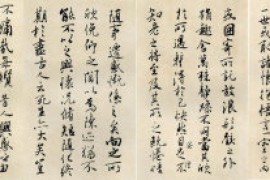 或因寄所託放浪形骸之外
雖趣舍萬殊靜躁不同當其欣
於所遇輒得於己快然自足不
知老之將至及其所之既倦情
隨事遷感慨係之矣向之所
欣俛仰之間以為陳迹猶不
能不以之興懷況脩短隨化終
期於盡古人云死生亦大矣豈
不痛哉每攬昔人興感之由